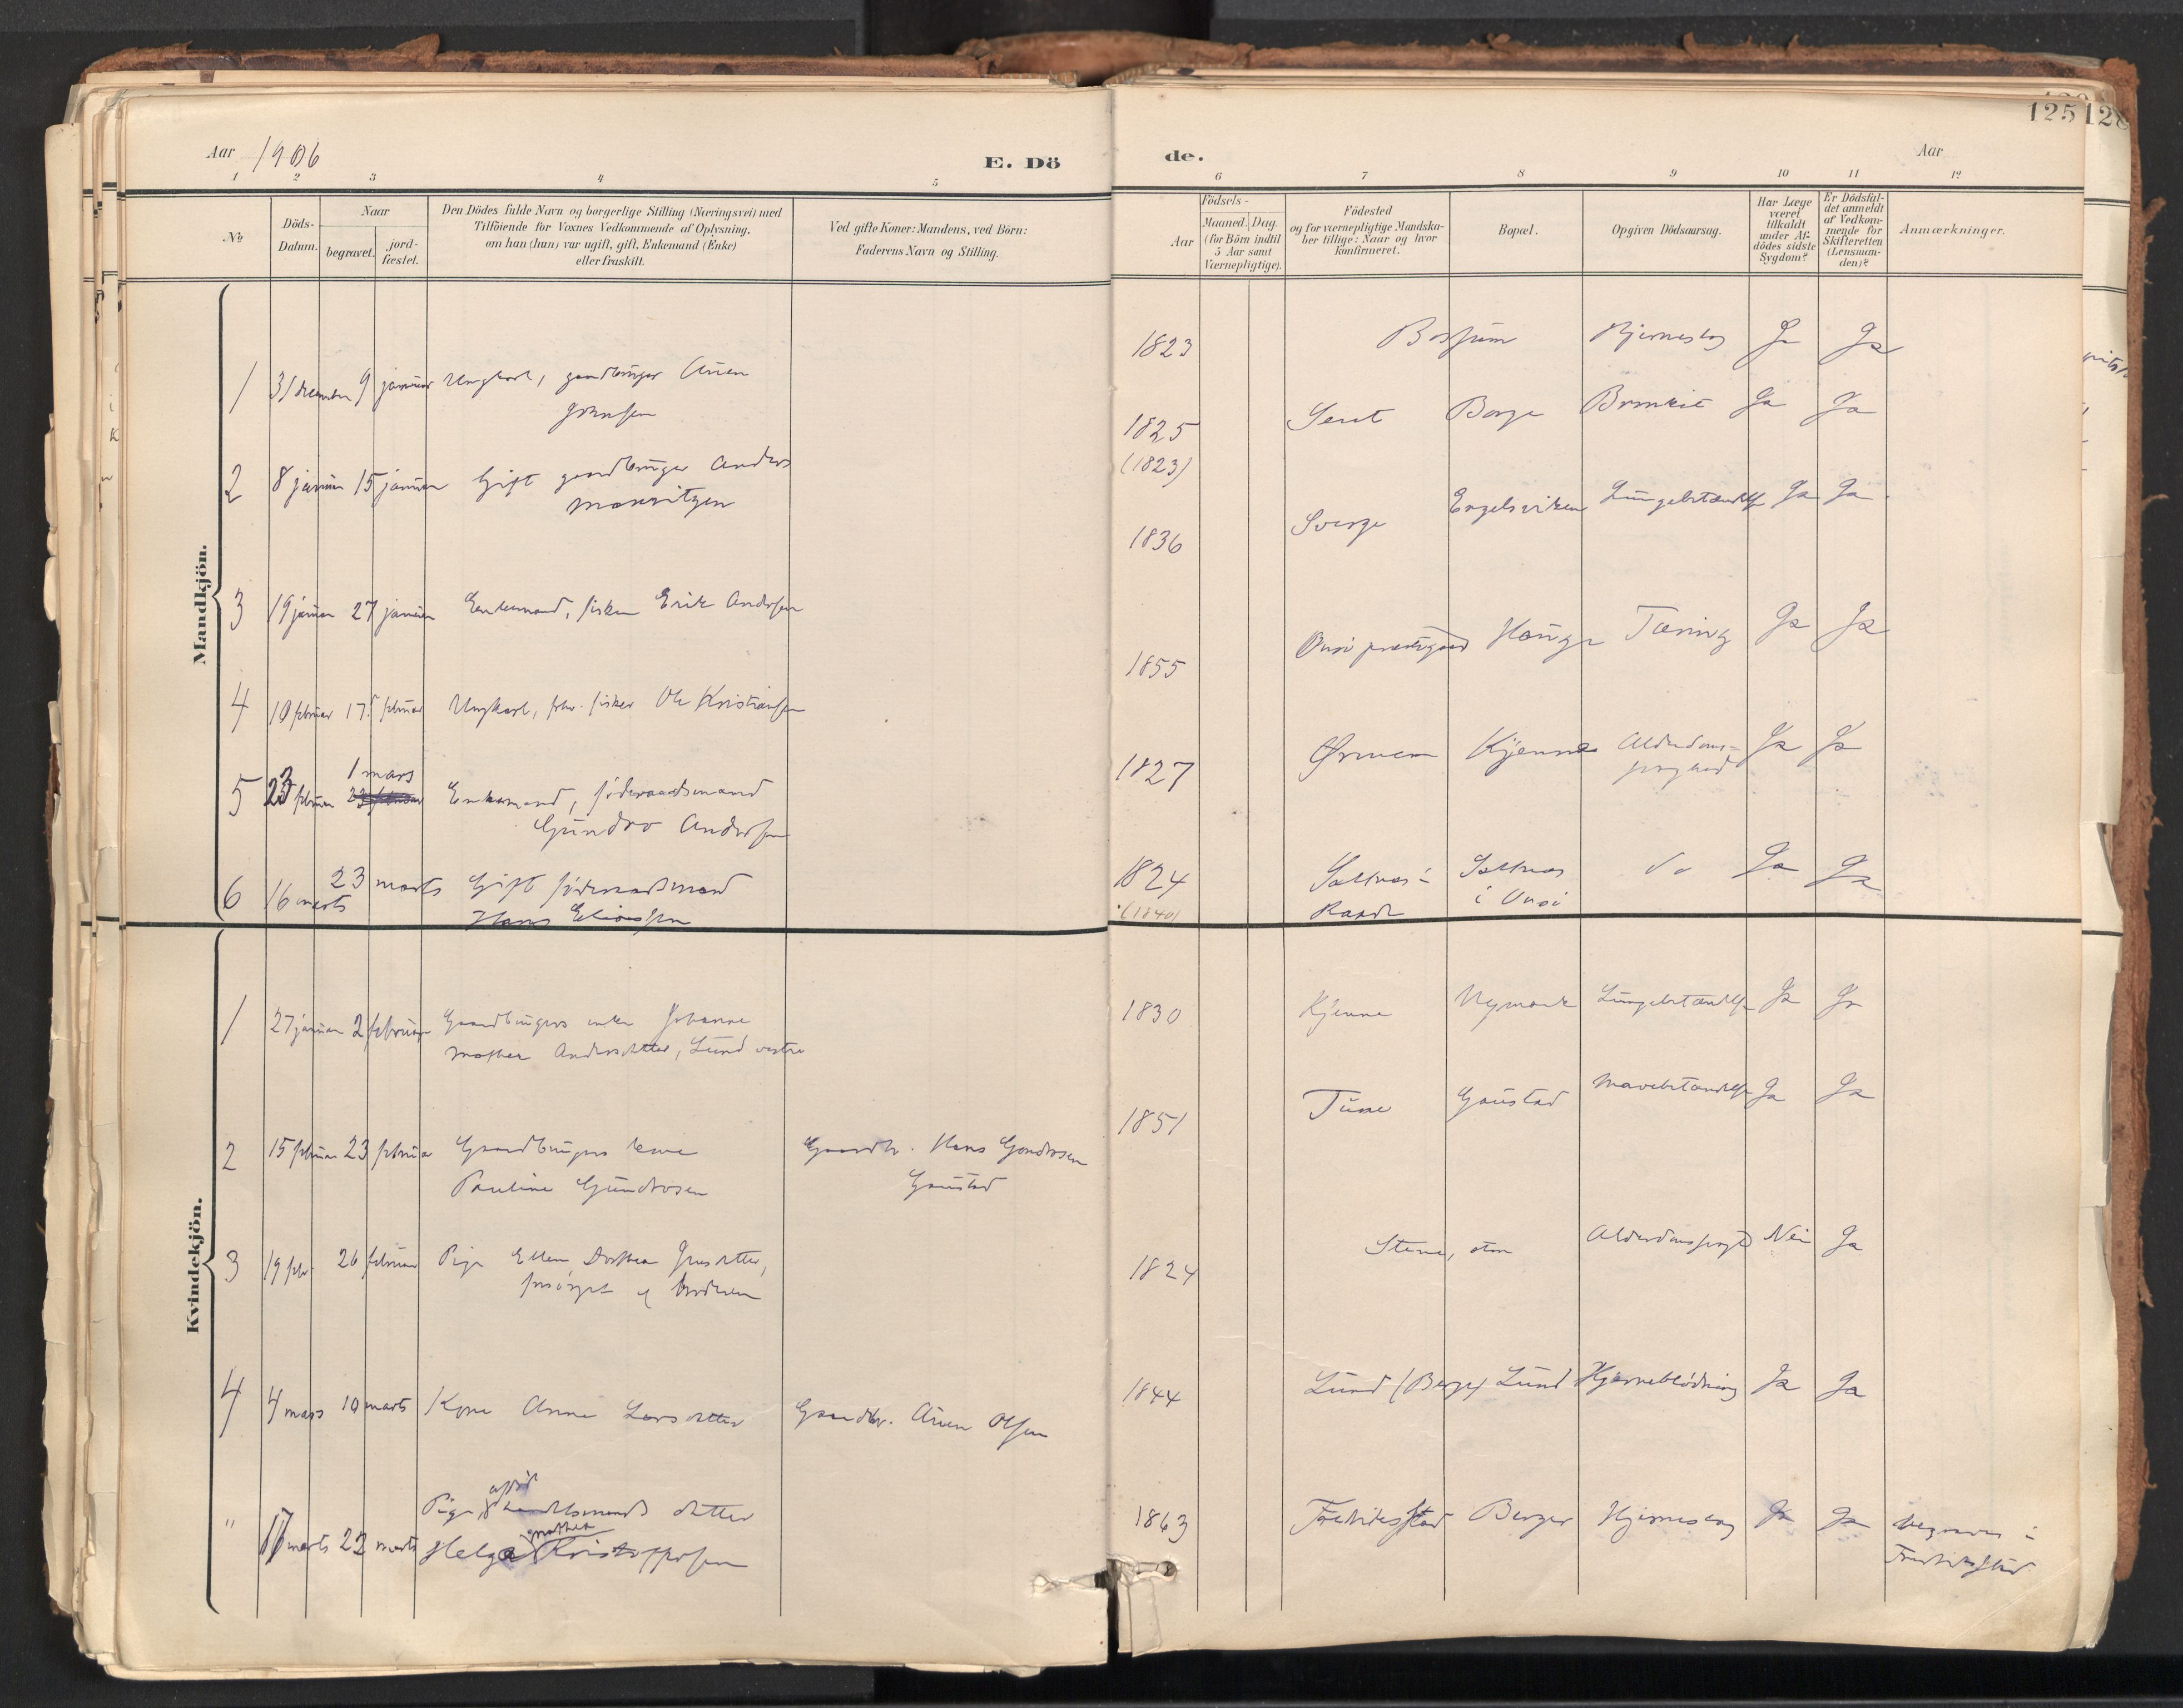 125 128
Aar 1906 E. Dö de. Aar
1 2 3 4 5 6 7 8 9 10 11 12
No
Döds-
Datum.
Naar
begravet.
jord-
fæstet.
Den Dödes fulde Navn og borgerlige Stilling (Næringsvei) med
Tilföiende for Voxnes Vedkommende af Oplysning,
om han (hun) var ugift, gift, Enkemand (Enke)
eller fraskilt.
Ved gifte Koner: Mandens, ved Börn:
Faderens Navn og Stilling.
Födsels-
Aar
Maaned. Dag.
(for Börn indtil
5 Aar samt
Værnepligtige).
Födested
og for værnepligtige Mandska-
ber tillige: Naar og hvor
konfirmeret.
Bopæl.
Opgiven Dödsaarsag.
Har Læge
været
tilkaldt
under Af-
dödes sidste
Sygdom?
Er Dödsfal-
det anmeldt
af Vedkom-
mende for
Skifteretten
(Lensman-
den)?
Anmærkninger.
Mandkjön.
1 31 december 9 januar Ungkarl, gaardbruger Auen
Johnsen
1823 Hjerneslag Ja Ja
2 8 januar 15 januar Gift gaardbruger Anders
Mauritzen
1825
(1823)
Borge Ja Ja
3 19 januar 27 januar Enkemand, fisker Erik Andersen
1836 Sverge Engelsviken Lungebetændelse Ja Ja
4 10 februar 17 februar Ungkarl, fhv. fisker Ole Kristiansen
1855 Onsö prestegaard Hauge Tæring Ja Ja
5 23 februar 1 mars
Enkemand, föderaadsmand
Gundro Andersen
1827 Kjenne Alderdoms-
Ja Ja
6 16 marts 23 marts Gift föderaadsmand
Hans Eliassen
1824
(1840)
Saltnes i
Raade
Saltnes
i Onsö
do Ja Ja
Kvindekjön.
1 27 januar 2 februar Gaardbrugers enke Johanne
Mathea Andersdatter, Lund vestre
1830 Kjenne Nymark Lungebetændelse Ja Ja
2 15 februar 23 februar Gaardbrugers kone
Pauline Gundrosen
Gaardbr. Hans Gundrosen
Gaustad
1851 Tune Gaustad Mavebetændelse Ja Ja
3 19 febr. 26 februar Pige Ellen Dorthea Jensdatter,
forsörget af broderen
1824 Nei Ja
4 4 mars 10 marts Kone Anne Larsdatter
Gaardbr. Auen Olsen
1844 Lund (Borge) Lund Hjerneblödning Ja Ja
" 17 marts 22 marts Pige, afdöd handelsmands datter
Helga Mathea Kristoffersen
1863 Fredriksstad Berger Hjerneslag Ja Ja begraven i
Fredriksstad